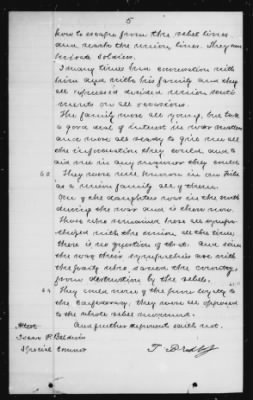 5
how to escape from the rebel lines
and reach the union lines. They
soldier.
I many times had conversation with
him and with his family and they
all expressed decided union senti
ments on all occasions.
The family were all young, but took
a good deal of interest in war matters
and were all ready to give me all
the information they could, and to
aid me in any manner they could.
They were well known in our
as a union family all of them.
One of the daughters was in the north
during the war and is there now.
Those who remained, those all sympa-
thized with the union all the time,
there is no question of that. And said
the way their sympathies are with
the party who saved the country
from destruction by the rebels.
They could none of them loyal to
the Confederacy, they were all opposed
to the whole rebel movement.
And further deponent saith not.
Attest
Isaac P. Baldwin
Special Commr